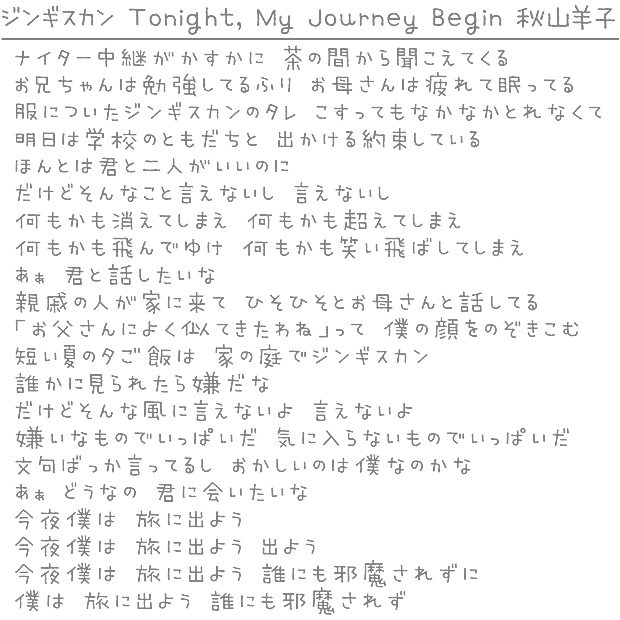 ジンギスカン Tonight, My Journey Begin 秋山羊子
ナイター中継がかすかに 茶の間から聞こえてくる
お兄ちゃんは勉強してるふり お母さんは疲れて眠ってる
服についたジンギスカンのタレ こすってもなかなかとれなくて
明日は学校のともだちと 出かける約束している
ほんとは君と二人がいいのに
だけどそんなこと言えないし 言えないし
何もかも消えてしまえ 何もかも超えてしまえ
何もかも飛んでゆけ 何もかも笑い飛ばしてしまえ
あぁ 君と話したいな
親戚の人が家に来て ひそひそとお母さんと話してる
「お父さんによく似てきたわね」って 僕の顔をのぞきこむ
短い夏の夕ご飯は 家の庭でジンギスカン
誰かに見られたら嫌だな
だけどそんな風に言えないよ 言えないよ
嫌いなものでいっぱいだ 気に入らないものでいっぱいだ
文句ばっか言ってるし おかしいのは僕なのかな
あぁ どうなの 君に会いたいな
今夜僕は 旅に出よう
今夜僕は 旅に出よう 出よう
今夜僕は 旅に出よう 誰にも邪魔されずに
僕は 旅に出よう 誰にも邪魔されず